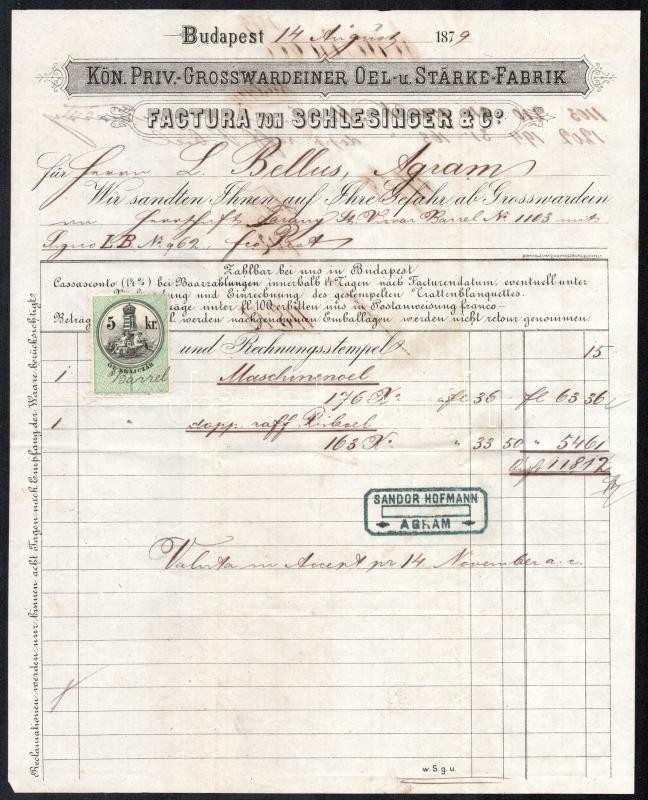 Budapest 14 August 1879
KÖN. PRIV.-GROSSWARDEINER OEL-u. STÄRKE-FABRIK
FACTURA VON SCHLESINGER & Co.
für Herrn L. Bellus, Agram
Wir sandten Ihnen auf Ihre Gefahr ab Grosswardein
Barrel No. 1103 mit
Signo L.B. No. 962,
Zahlbar bei uns in Budapest
Cassasconto (1½%) bei Baarzahlungen innerhalb 14 Tagen nach Facturendatum, eventuell unter
und Einsendung des gestempelten Trattenblanquetes.
fl. 100 erbitten uns in Postanweisung franco
werden nachgenommen Emballagen werden nicht retour genommen.
5 kr.
und Rechnungsstempel 15
1 Barrel Maschinenoel
176 Ko. à fl 36 fl 63 36
1 " dopp. raff Rüboel
163 Ko. " 33 50 " 54 61
118 12
SANDOR HOFMANN
AGRAM
Valuta in Accept pr 14 November a. c.
w. S. g. u.
Reclamationen werden nur binnen acht Tagen nach Empfang der Waare berücksichtigt